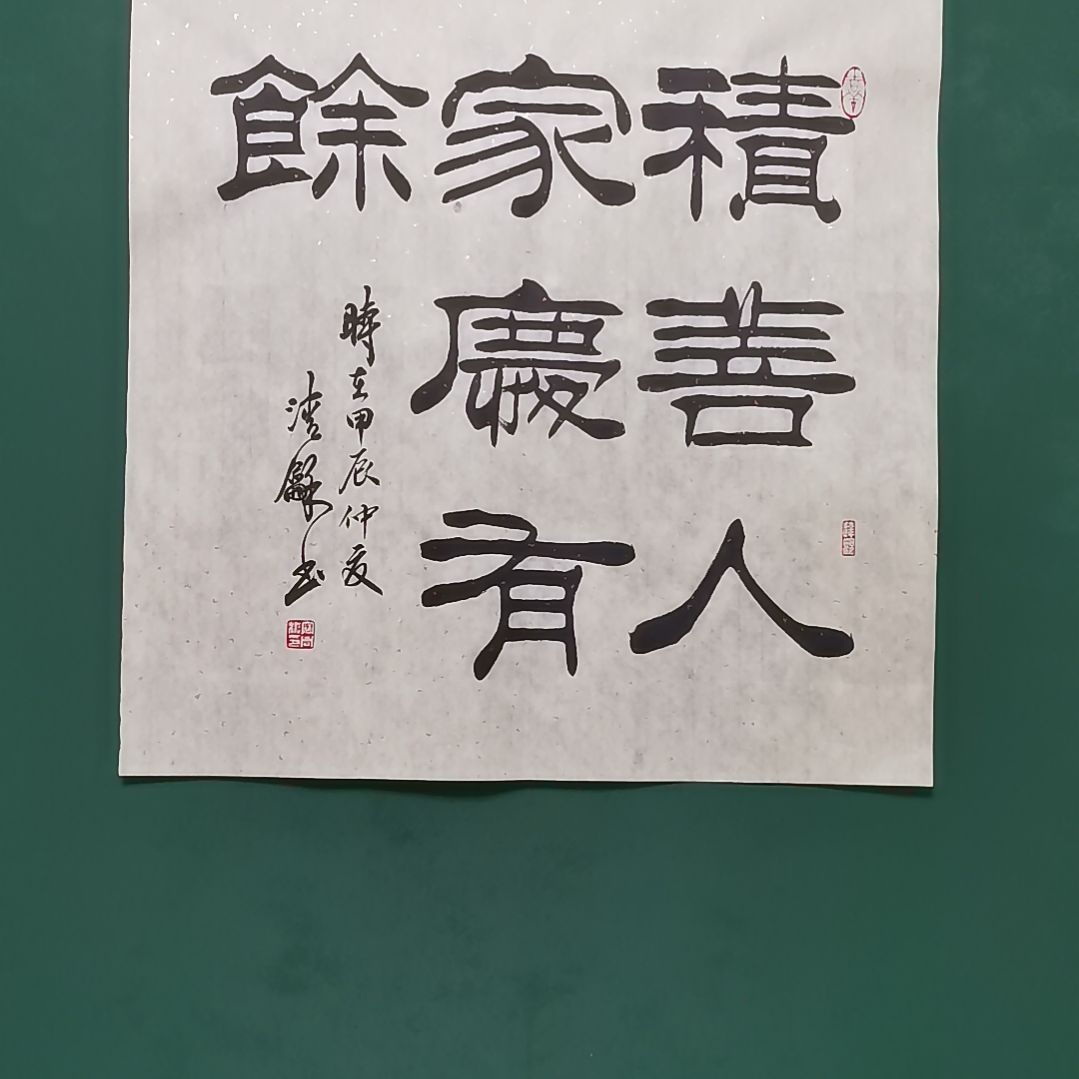 積善人
家慶有
餘
時在甲辰仲夏
清龢书